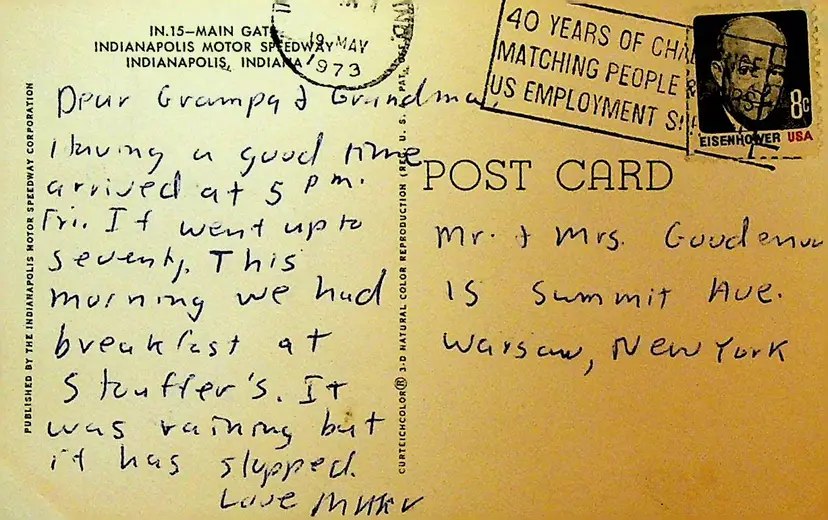 IN.15—MAIN GATE
INDIANAPOLIS MOTOR SPEEDWAY
INDIANAPOLIS, INDIANA
PUBLISHED BY THE INDIANAPOLIS MOTOR SPEEDWAY CORPORATION
Dear Grampa & Grandma,
Having a good time
arrived at 5 pm.
Fri. It went up to
seventy. This
morning we had
breakfast at
Stouffer's. It
was raining but
it has stopped.
Love
CURTEICHCOLOR® 3-D NATURAL COLOR REPRODUCTION (REG. U. S. PAT. OFF.
IND.
19 MAY
1973
40 YEARS OF
MATCHING PEOPLE
US EMPLOYMENT
EISENHOWER USA
8c
POST CARD
Mr. & Mrs. Goodenou
15 Summit Ave.
Warsaw, New York